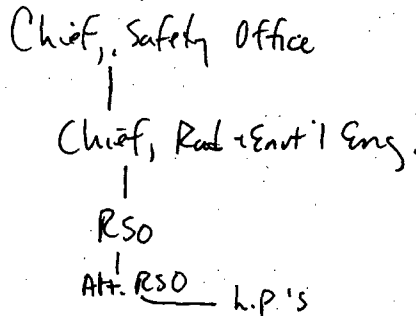 Chief, Safety Office
Chief, Rad + Envt'l Eng.
RSO
Alt. RSO h.p.'s